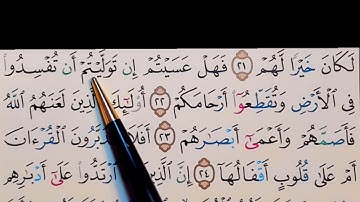 لَكَانَ خَيْرًا لَّهُمْ ﴿٢١﴾ فَهَلْ عَسَيْتُمْ إِن تَوَلَّيْتُمْ أَن تُفْسِدُوا۟
فِى ٱلْأَرْضِ وَتُقَطِّعُوٓا۟ أَرْحَامَكُمْ ﴿٢٢﴾ أُو۟لَٰٓئِكَ ٱلَّذِينَ لَعَنَهُمُ ٱللَّهُ
فَأَصَمَّهُمْ وَأَعْمَىٰٓ أَبْصَٰرَهُمْ ﴿٢٣﴾ أَفَلَا يَتَدَبَّرُونَ ٱلْقُرْءَانَ
أَمْ عَلَىٰ قُلُوبٍ أَقْفَالُهَآ ﴿٢٤﴾ إِنَّ ٱلَّذِينَ ٱرْتَدُّوا۟ عَلَىٰٓ أَدْبَٰرِهِم